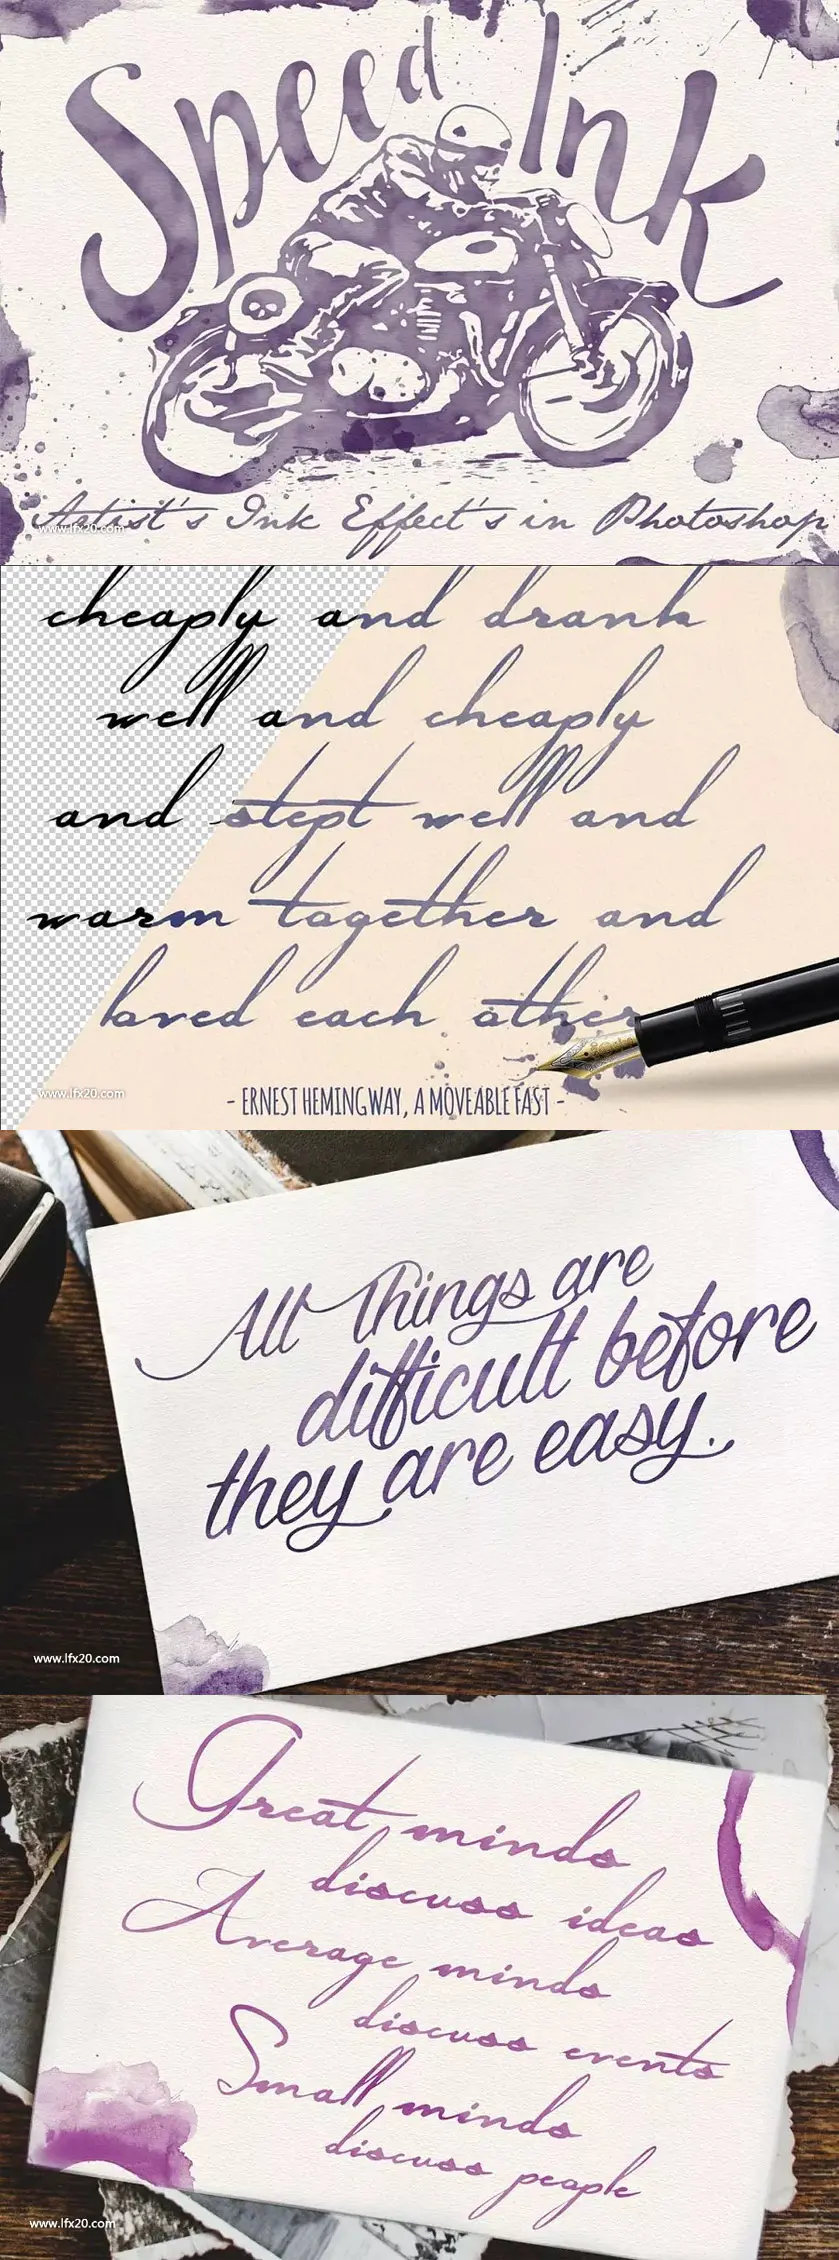 Speed Ink
Artist's Ink Effect's in Photoshop
www.lfx20.com
cheaply and drank
well and cheaply
and stept well and
warm together and
loved each other
- ERNEST HEMINGWAY, A MOVEABLE FAST -
www.lfx20.com
All Things are
difficult before
they are easy.
www.lfx20.com
Great minds
discuss ideas
Average minds
discuss events
Small minds
discuss people
www.lfx20.com